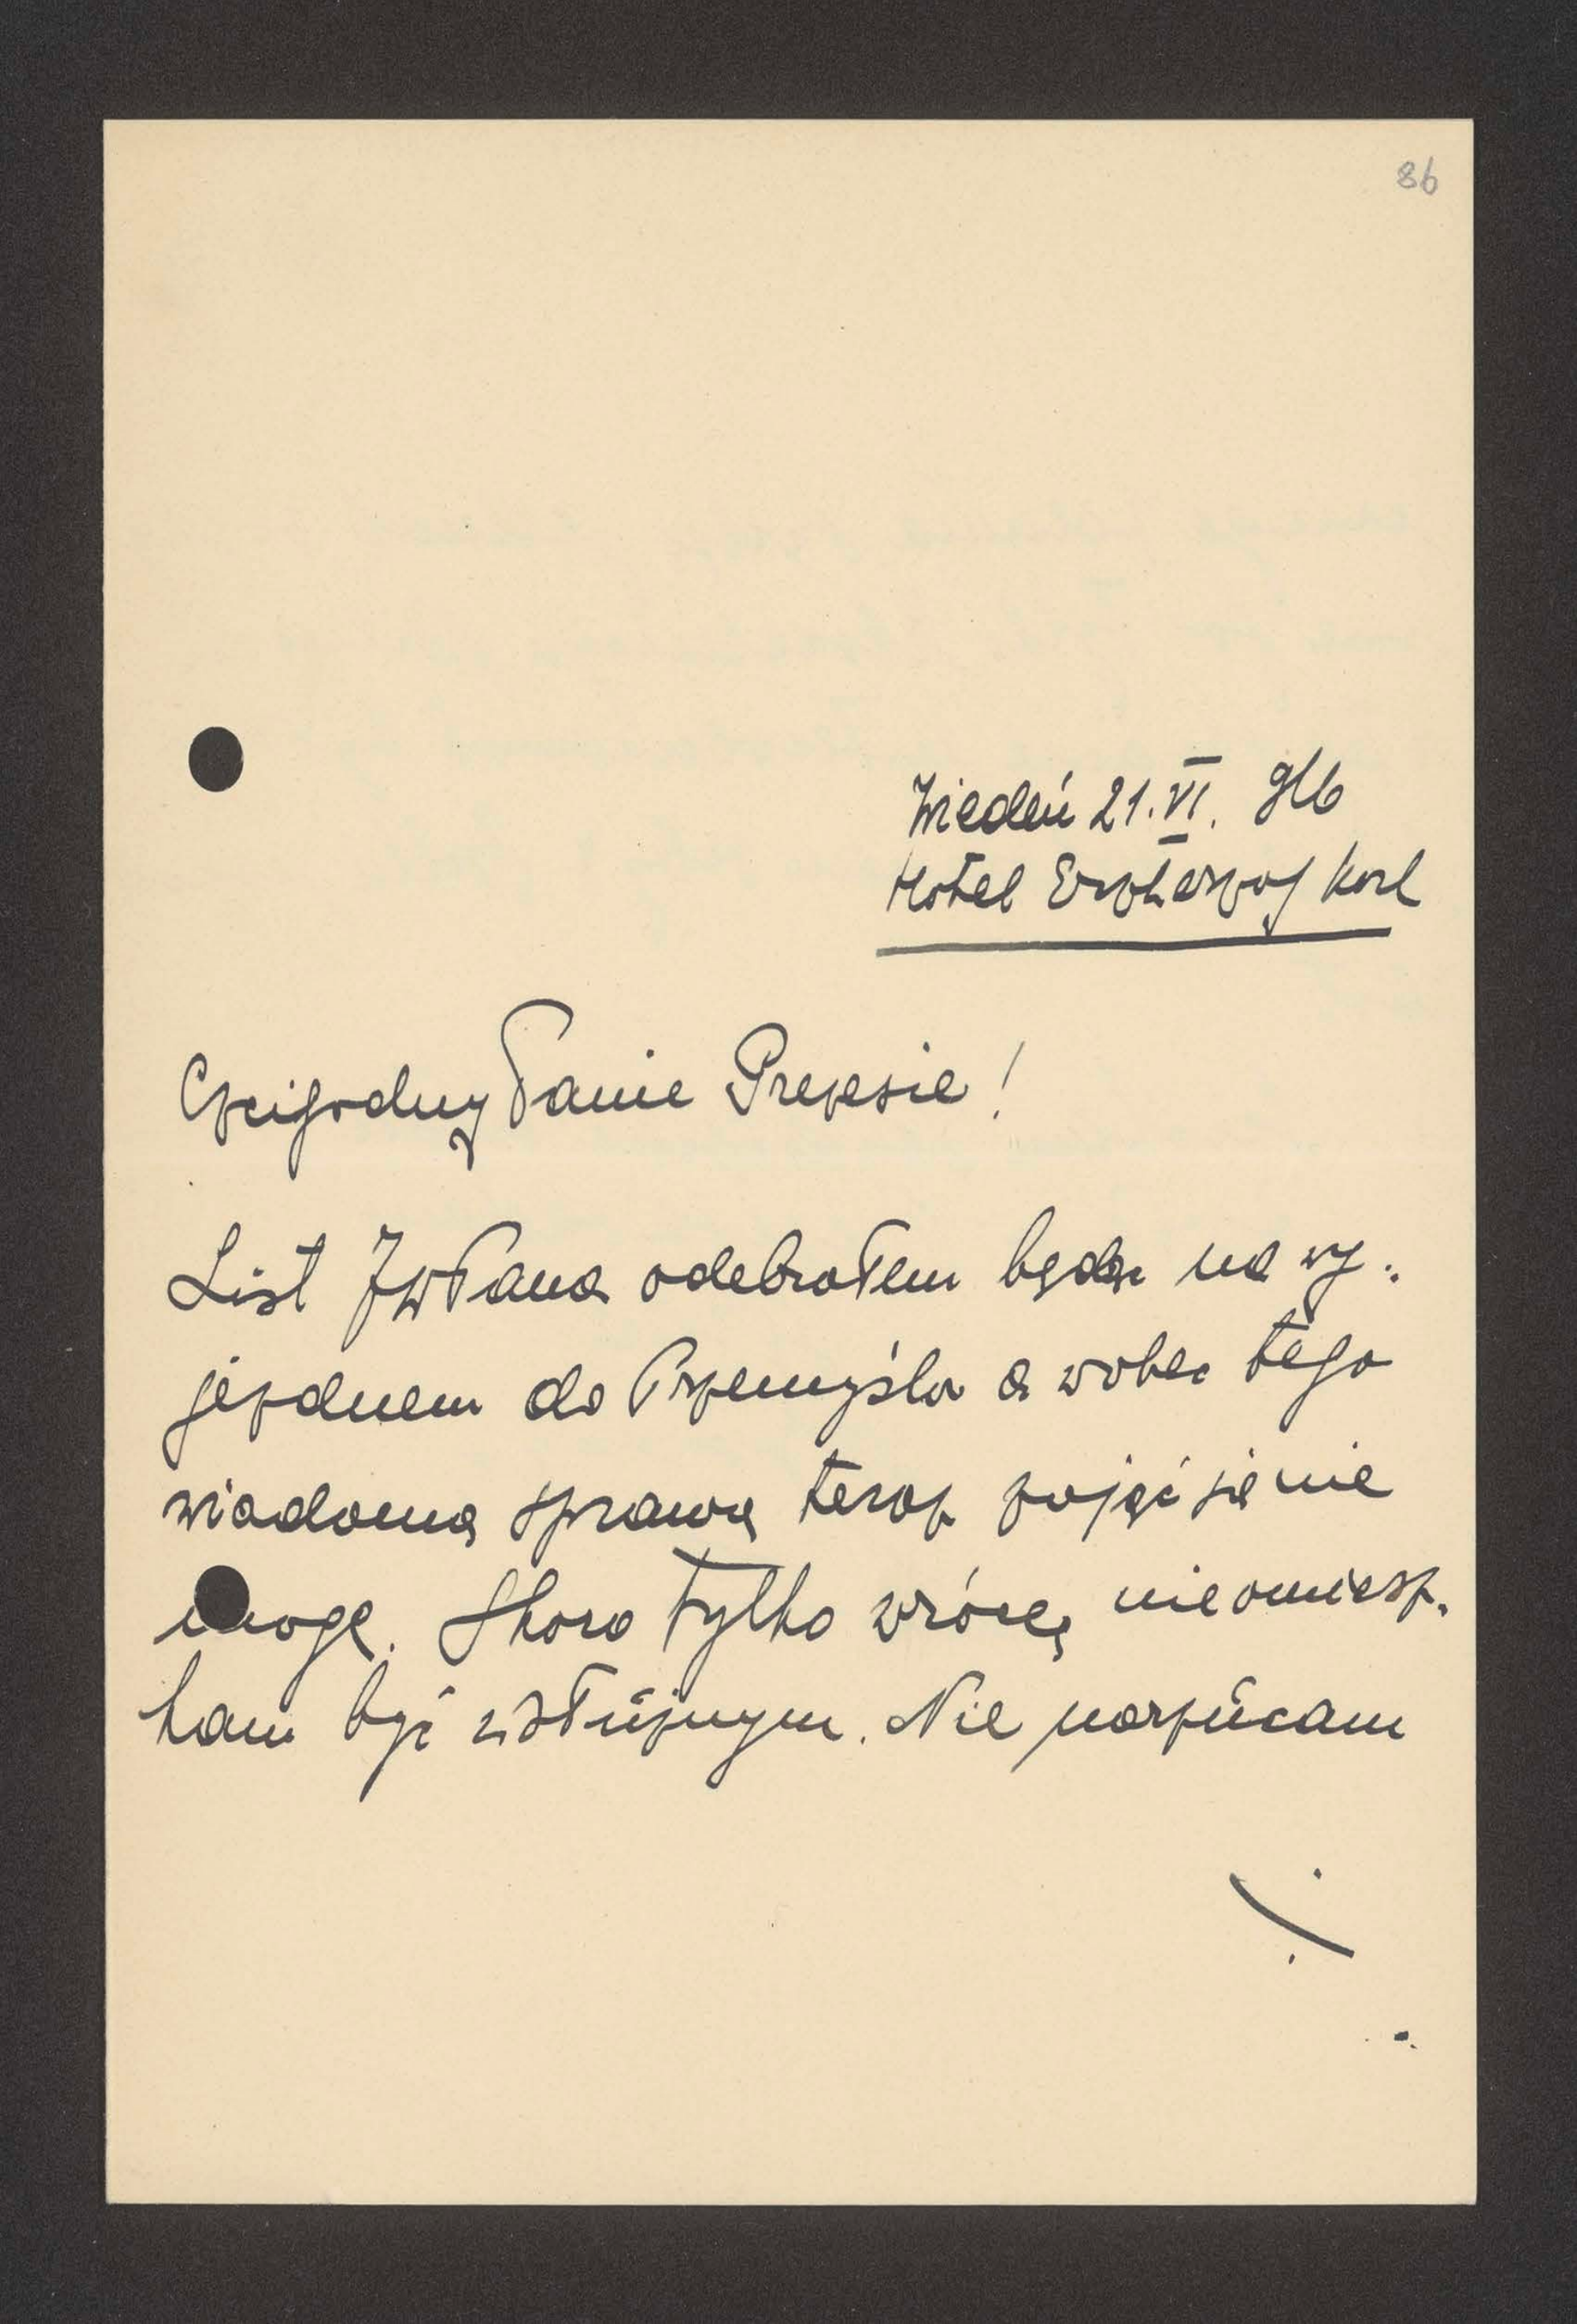 86
Wiedeń 21. VI. 916
Hotel Erzherzog Karl
Czcigodny Panie Prezesie!
List JWPana odebrałem będąc na wy-
jezdnem do Przemyśla a wobec tego
wiadomą sprawą teraz zająć się nie
mogę. Skoro tylko wrócę, nieomiesz-
kam być usłużnym. Nie narzucam